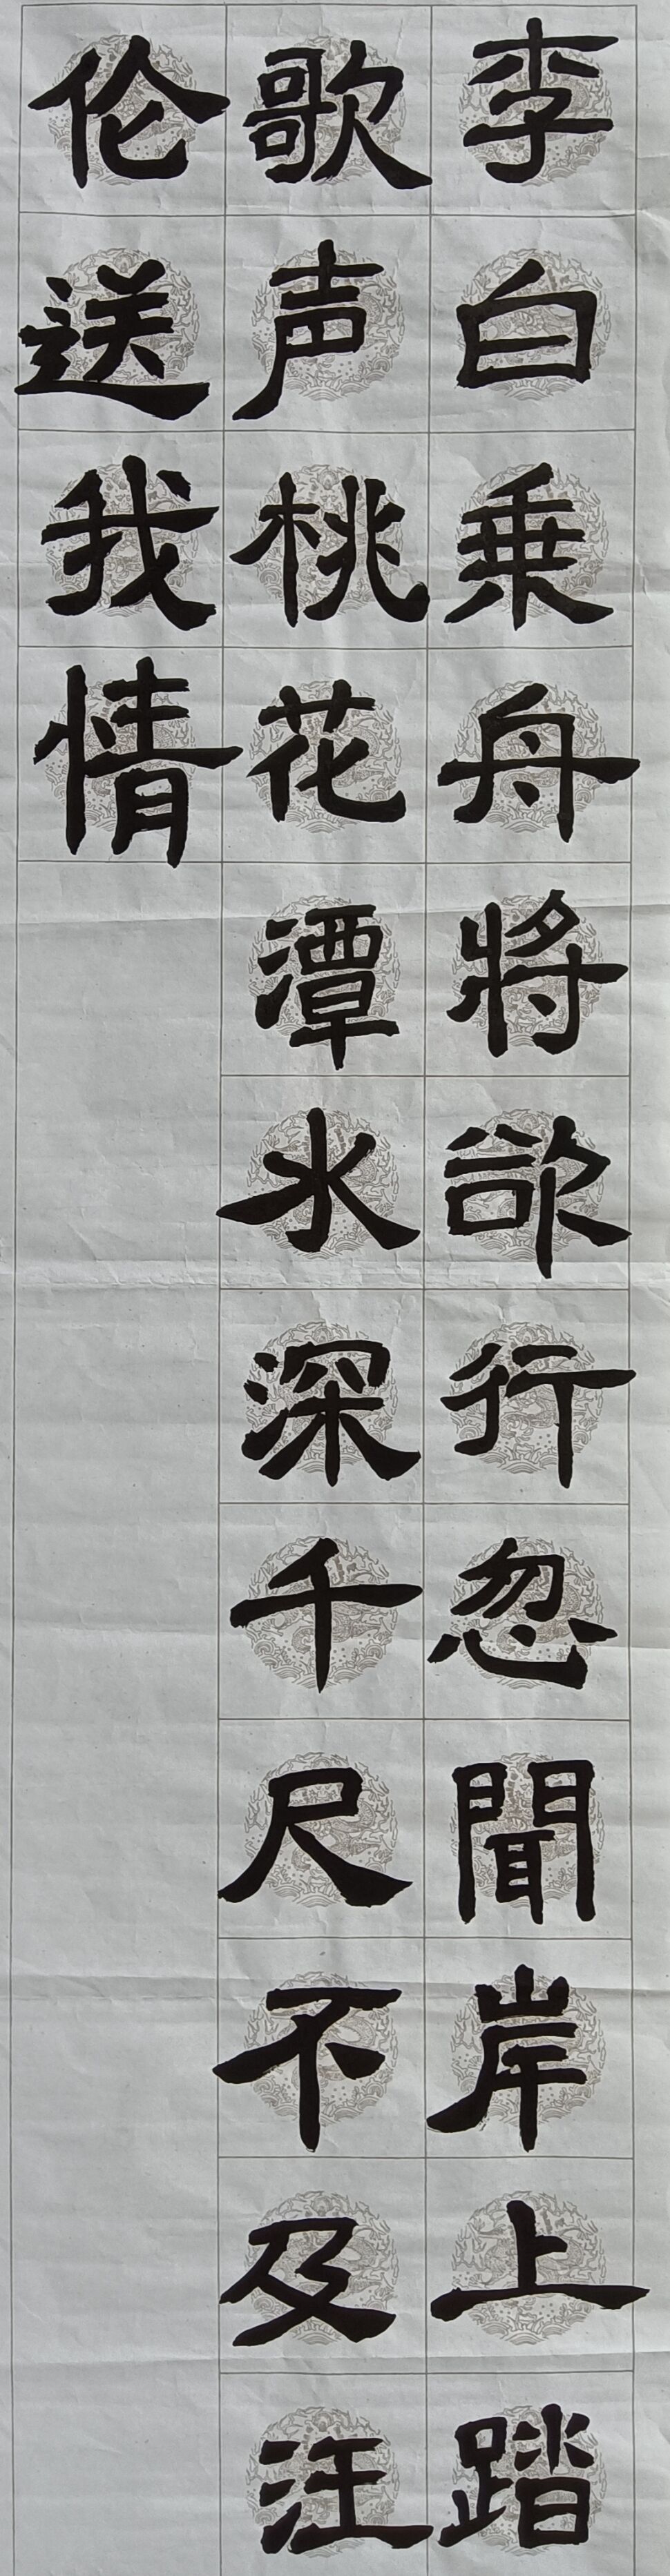 李白乘舟將欲行忽聞岸上踏
歌声桃花潭水深千尺不及汪
伦送我情